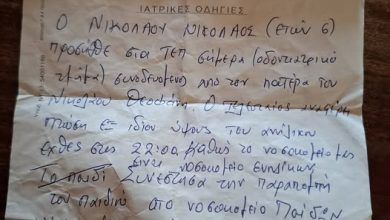 ΙΑΤΡΙΚΕΣ ΟΔΗΓΙΕΣ
Ο ΝΙΚΟΛΑΟΥ ΝΙΚΟΛΑΟΣ (ετών 6)
προσήλθε στα ΤΕΠ σήμερα (οδοντιατρικό
τμήμα) συνοδευόμενος από τον πατέρα του
Νικολάου Θεοφάνη. Ο τελευταίος αναφέρει
πτώση εξ ιδίου ύψους του ανήλικου
εχθές στις 22:00 καθώς το νοσοκομείο μας
είναι νοσοκομείο ενηλίκων
Το παιδί Συνεστήσα την παραπομπή
του παιδιού στο νοσοκομείο Παίδων